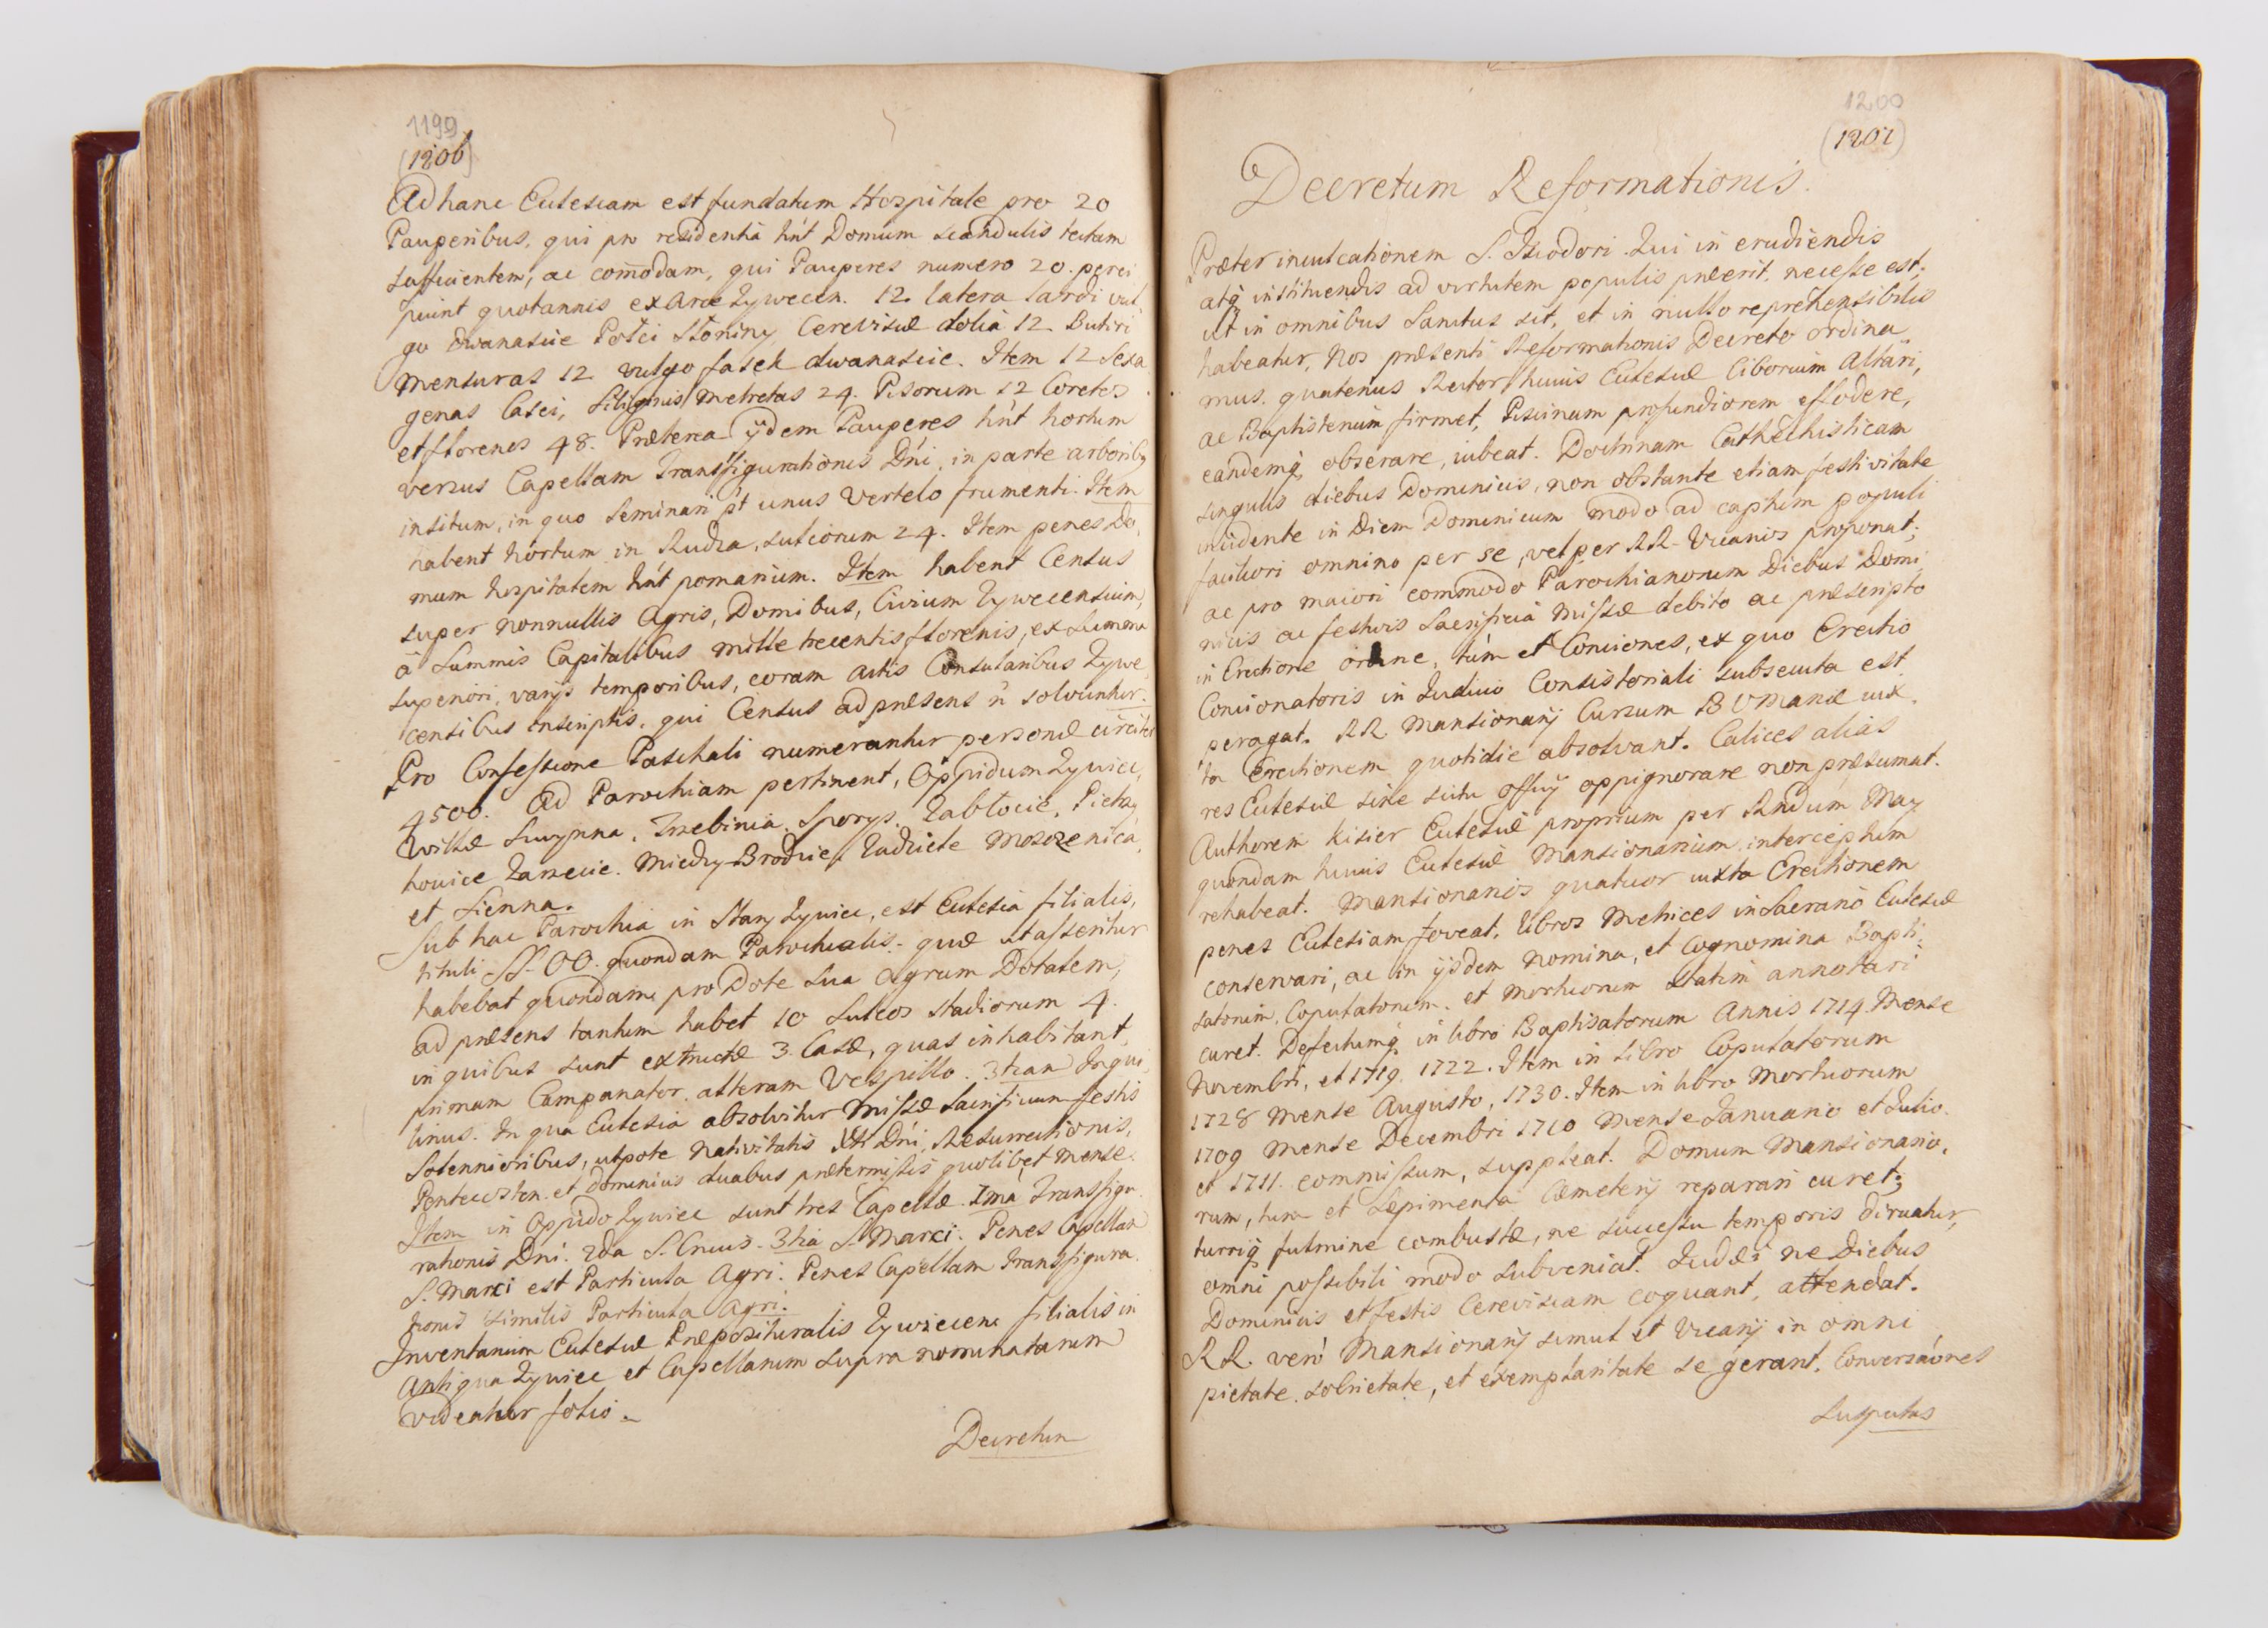 1199
(1200)
Ad hanc Ecclesiam est fundatum Hospitale pro 20
Pauperibus, qui pro residentia hńt Domum scandulis tectam
sufficientem, ac com̄odam, qui Pauperes numero 20. perci
piunt quotannis ex Arce Zywecen. 12 latera lardi vul
go dwanascie Połci Słoniny Cerevisiæ dolia 12 Butiri
mensuras 12 vulgo fasek dwanascie. Item 12 sexa
genas Casei, Siliginis Metretas 24. Pisorum 12 Coretos
et florenos 48. Præterea ijdem Pauperes hńt hortum
versus Capellam Transfigurationis Dńi, in parte arboribꝯ
insitum, in quo seminari pt unus Vertelo frumenti. Item
habent hortum in Rudza, sulcorum 24. Item penes Do,
mum hospitalem hńt pomarium. Item habent Census
super nonnullis Agris, Domibus, Civium Zywecensium,
à Summis Capitalibus mille trecentis florenis, ex Summa
superiori, varijs temporibus, coram actis Consularibus Zywe,
censibus inscriptis, qui Census ad præsens ñ solvuntur.
Pro Confessione Paschali numerantur personæ circiter
4500. Ad Parochiam pertinent, Oppidum Zywiec,
Villæ Swynna, Trzebinia, Sporys, Zabłocie, Pietrzy
kowice Zarzecie. Miedzy-Brodzie, Zadziele Moszczenica,
et Sienna.
Sub hac Parochia in Stary Zywiec, est Ecclesia filialis,
tituli SS. OO. quondam Parochialis. quæ ut asseritur
habebat quondam pro Dote sua Agrum Dotalem,
ad præsens tantum habet 10 Sulcos stadiorum 4.
in quibus sunt extructæ 3. Casæ, quas inhabitant,
primam Campanator, alteram Vespillo. 3tiam Inqui,
linus. In qua Ecclesia absolvitur Missæ Sacrificium festis
Solennioribus, utpote Nativitatis Xti Dńi, Resurrectionis,
Pentecosten. et dominicis duabus prætermissis quolibet Mense.
Item in Oppido Zywiec sunt tres Capellæ. Ima Transfigu
rationis Dńi. 2da S. Crucis. 3tia S. Marci. Penes Capellam
S. Marci est Particula Agri. Penes Capellam Transfigura.
tionis similis Particula Agri.
Inventarium Ecclesiæ Præposituralis Zywiecen. filialis in
Antiqua Zywiec et Capellarum supra nominatarum
videatur folio.
Decretum
1200
(1201)
Decretum Reformationis.
Præter inculcationem S. Theodori. Qui in erudiendis
atq̨ instituendis ad virtutem populis præerit, necesse est,
ut in omnibus Sanctus sit, et in nullo reprehensibilis
habeatur, Nos præsenti Reformationis Decreto ordina
mus. quatenus Rector huius Ecclesiæ Ciborium Altari,
ac Baptisterium firmet, Piscinam profundiorem effodere,
eandemq̨ obserare, iubeat. Doctrinam Cathechisticam
singulis diebus Dominicis, non obstante etiam festivitate
incidente in Diem Dominicum modo ad captum populi
faciliori omnino per se, vel per RR. Vicarios proponat;
ac pro maiori commodo Parochianorum Diebus Domi
nicis ac festivis Sacrificia Missæ debito ac præscripto
in Erectione ordine, tùm et Conciones, ex quo Erectio
Concionatoris in Iudicio Consistoriali subsecuta est
peragat. RR. Mansionarij Cursum B V Mariæ iux
ta Erectionem quotidie absolvant. Calices alias
res Ecclesiæ sine scitu offcij oppignorare non præsumat.
Authorem Kisier Ecclesiæ proprium per Rndum May
quondam huius Ecclesiæ Mansionarium interceptum
rehabeat. Mansionarios quatuor iuxta Erectionem
penes Ecclesiam foveat, libros Metrices in Sacrario Ecclesiæ
conservari, ac in ijsdem Nomina, et Cognomina Bapti,
satorum, Copulatorum, et Mortuorum statim annotari
curet. Defectumq̨ in libro Baptisatorum Annis 1714. Mense
Novembri, et 1719. 1722. Item in libro Copulatorum
1728 Mense Augusto, 1730. Item in libro Mortuorum
1709 Mense Decembri 1710 Mense Januario et Julio
et 1711. commissum, suppleat. Domum Mansionario,
rum, tum et Sepimenta Cæmeterij reparari curet;
turriq̨ fulmine combustæ, ne successu temporis diruatur,
omni possibili modo subveniat. Judæi ne Diebus
Dominicis et festis Cerevisiam coquant, attendat.
RR. verò Mansionarij simul et Vicarij in omni
pietate, sobrietate, et exemplaritate se gerant, Conversaões
Suspectas